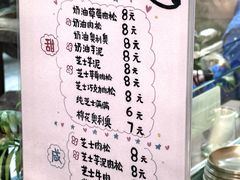 奶油草莓肉松 8元
奶油肉松 8元
奶油奥利奥 8元
奶油芋泥 8元
甜
芝士芋泥 8元
芝士草莓肉松 8元
芝士巧克力肉松 8元
纯芝士满满 6元
棉花奥利奥 7元
咸
芝士肉松 8元
芝士芋泥肉松 8元
芝士牛肉